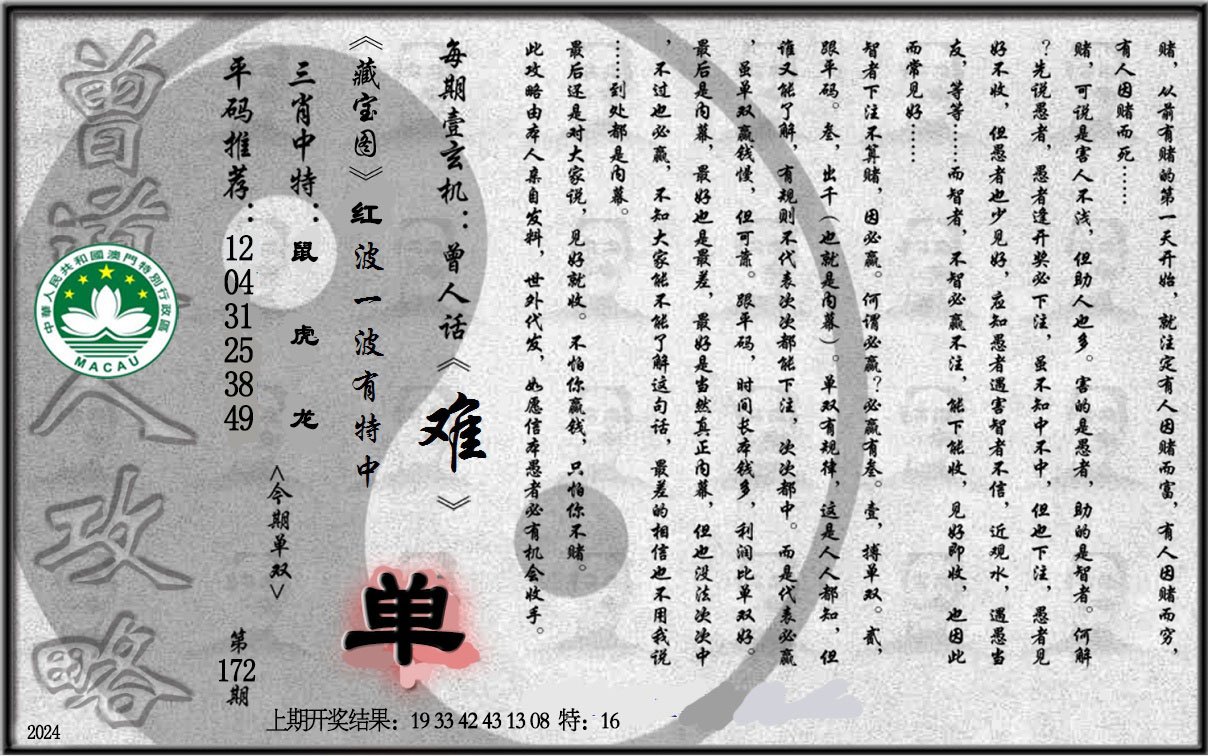 赌，从前有赌的第一天开始，就注定有人因赌而富，有人因赌而穷，
有人因赌而死……
赌，可说是害人不浅，但助人也多。害的是愚者，助的是智者。何解
？先说愚者，愚者逢开奖必下注，虽不知中不中，但也下注，愚者见
好不收，但愚者也少见好，应知愚者遇害智者不信，近观水，遇愚当
友，等等……而智者，不智必赢不注，能下能收，见好即收，也因此
而常见好……
智者下注不算赌，因必赢。何谓必赢？必赢有叁。壹，搏单双。贰，
跟平码。叁，出千（也就是内幕）。单双有规律，这是人人都知，但
谁又能了解，有规则不代表次次都能下注，次次都中。而是代表必赢
，虽单双赢钱慢，但可靠。跟平码，时间长本钱多，利润比单双好。
最后是内幕，最好也是最差，最好是当然真正内幕，但也没法次次中
，不过也必赢，不知大家能不能了解这句话，最差的相信也不用我说
……到处都是内幕。
最后还是对大家说，见好就收。不怕你赢钱，只怕你不赌。
此攻略由本人亲自发料，世外代发，如愿信本愚者必有机会收手。
每期壹玄机：曾人话《难》
《藏宝图》红波一波有特中
三肖中特：鼠 虎 龙
<今期单双>
单
平码推荐：12 04 31 25 38 49
第172期
曾道人攻略
中華人民共和國澳門特別行政區
MACAU
上期开奖结果：19 33 42 43 13 08 特：16
2024